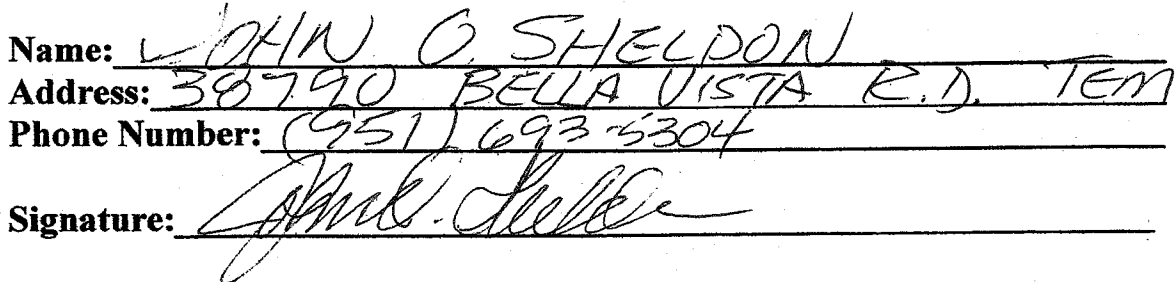 Name: JOHN O. SHELDON
Address: 38790 BELLA VISTA R.D. TEM
Phone Number: (951) 693-5304
Signature: